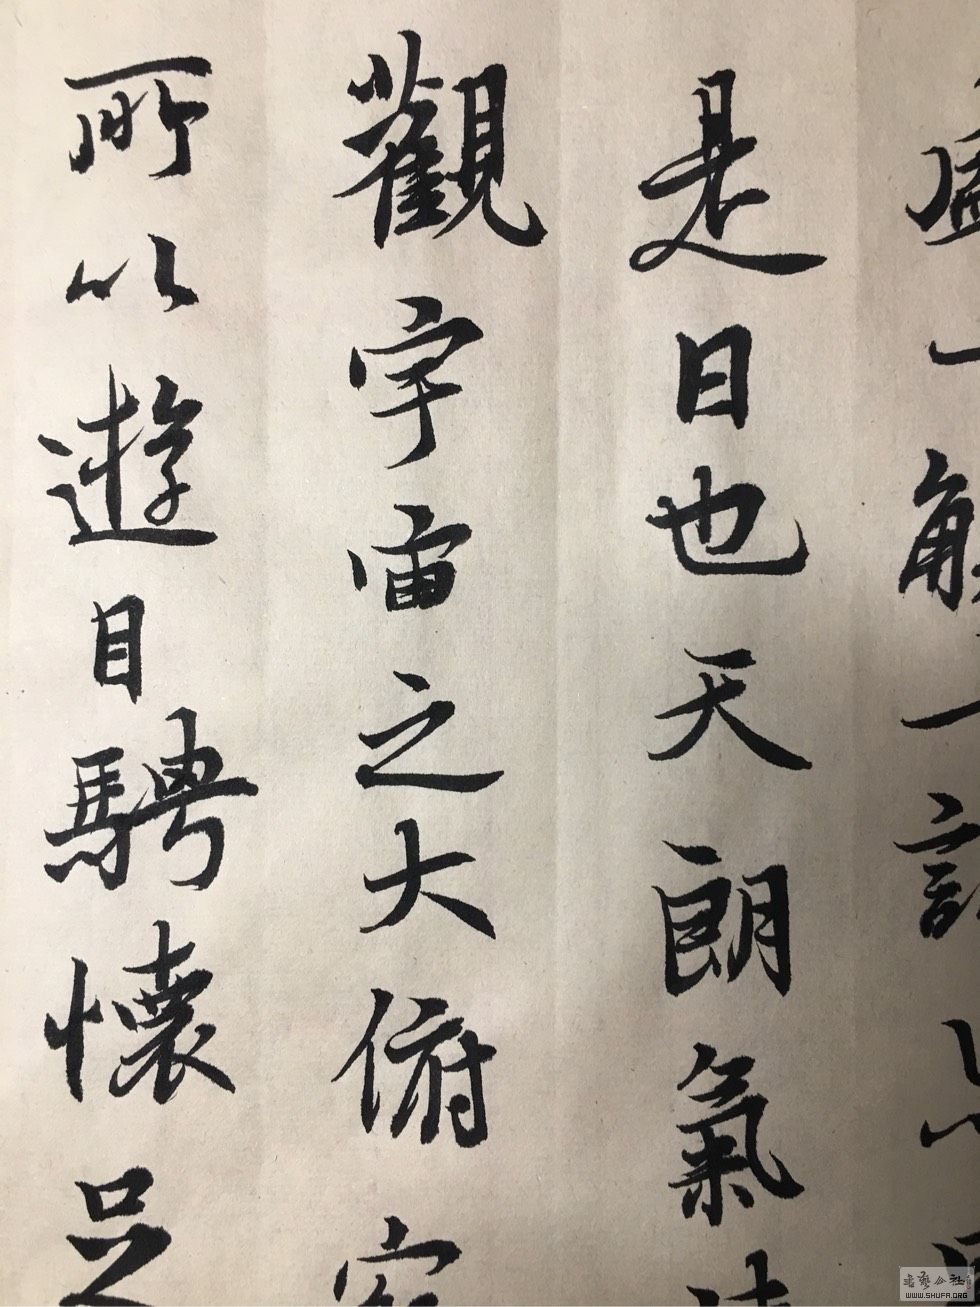 盛一觴一詠
是日也天朗氣
觀宇宙之大俯
所以遊目騁懷足
書藝公社
WWW.SHUFA.ORG